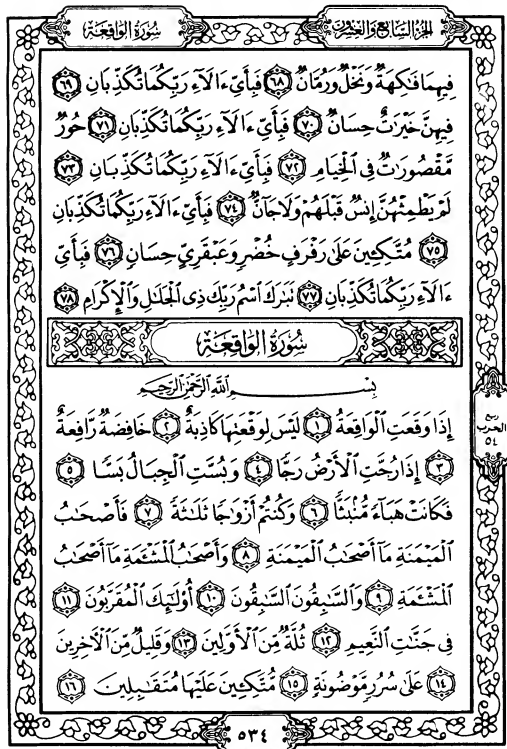 الجزء السابع والعشرون
سورة الواقعة
فِيهِمَا فَٰكِهَةٌ وَنَخْلٌ وَرُمَّانٌ ٦٨ فَبِأَيِّ ءَالَآءِ رَبِّكُمَا تُكَذِّبَانِ ٦٩
فِيهِنَّ خَيْرَٰتٌ حِسَانٌ ٧٠ فَبِأَيِّ ءَالَآءِ رَبِّكُمَا تُكَذِّبَانِ ٧١ حُورٌ
مَّقْصُورَٰتٌ فِى ٱلْخِيَامِ ٧٢ فَبِأَيِّ ءَالَآءِ رَبِّكُمَا تُكَذِّبَانِ ٧٣
لَمْ يَطْمِثْهُنَّ إِنسٌ قَبْلَهُمْ وَلَا جَآنٌّ ٧٤ فَبِأَيِّ ءَالَآءِ رَبِّكُمَا تُكَذِّبَانِ
٧٥ مُتَّكِـِٔينَ عَلَىٰ رَفْرَفٍ خُضْرٍ وَعَبْقَرِىٍّ حِسَانٍ ٧٦ فَبِأَيِّ
ءَالَآءِ رَبِّكُمَا تُكَذِّبَانِ ٧٧ تَبَٰرَكَ ٱسْمُ رَبِّكَ ذِى ٱلْجَلَٰلِ وَٱلْإِكْرَامِ ٧٨
سُورَةُ الوَاقِعَةِ
بِسْمِ ٱللَّهِ ٱلرَّحْمَٰنِ ٱلرَّحِيمِ
إِذَا وَقَعَتِ ٱلْوَاقِعَةُ ١ لَيْسَ لِوَقْعَتِهَا كَاذِبَةٌ ٢ خَافِضَةٌ رَّافِعَةٌ
٣ إِذَا رُجَّتِ ٱلْأَرْضُ رَجًّا ٤ وَبُسَّتِ ٱلْجِبَالُ بَسًّا ٥
فَكَانَتْ هَبَآءً مُّنۢبَثًّا ٦ وَكُنتُمْ أَزْوَٰجًا ثَلَٰثَةً ٧ فَأَصْحَٰبُ
ٱلْمَيْمَنَةِ مَآ أَصْحَٰبُ ٱلْمَيْمَنَةِ ٨ وَأَصْحَٰبُ ٱلْمَشْـَٔمَةِ مَآ أَصْحَٰبُ
ٱلْمَشْـَٔمَةِ ٩ وَٱلسَّٰبِقُونَ ٱلسَّٰبِقُونَ ١٠ أُو۟لَٰٓئِكَ ٱلْمُقَرَّبُونَ ١١
فِى جَنَّٰتِ ٱلنَّعِيمِ ١٢ ثُلَّةٌ مِّنَ ٱلْأَوَّلِينَ ١٣ وَقَلِيلٌ مِّنَ ٱلْءَاخِرِينَ
١٤ عَلَىٰ سُرُرٍ مَّوْضُونَةٍ ١٥ مُّتَّكِـِٔينَ عَلَيْهَا مُتَقَٰبِلِينَ ١٦
ربع
الحزب
٥٤
٥٣٤